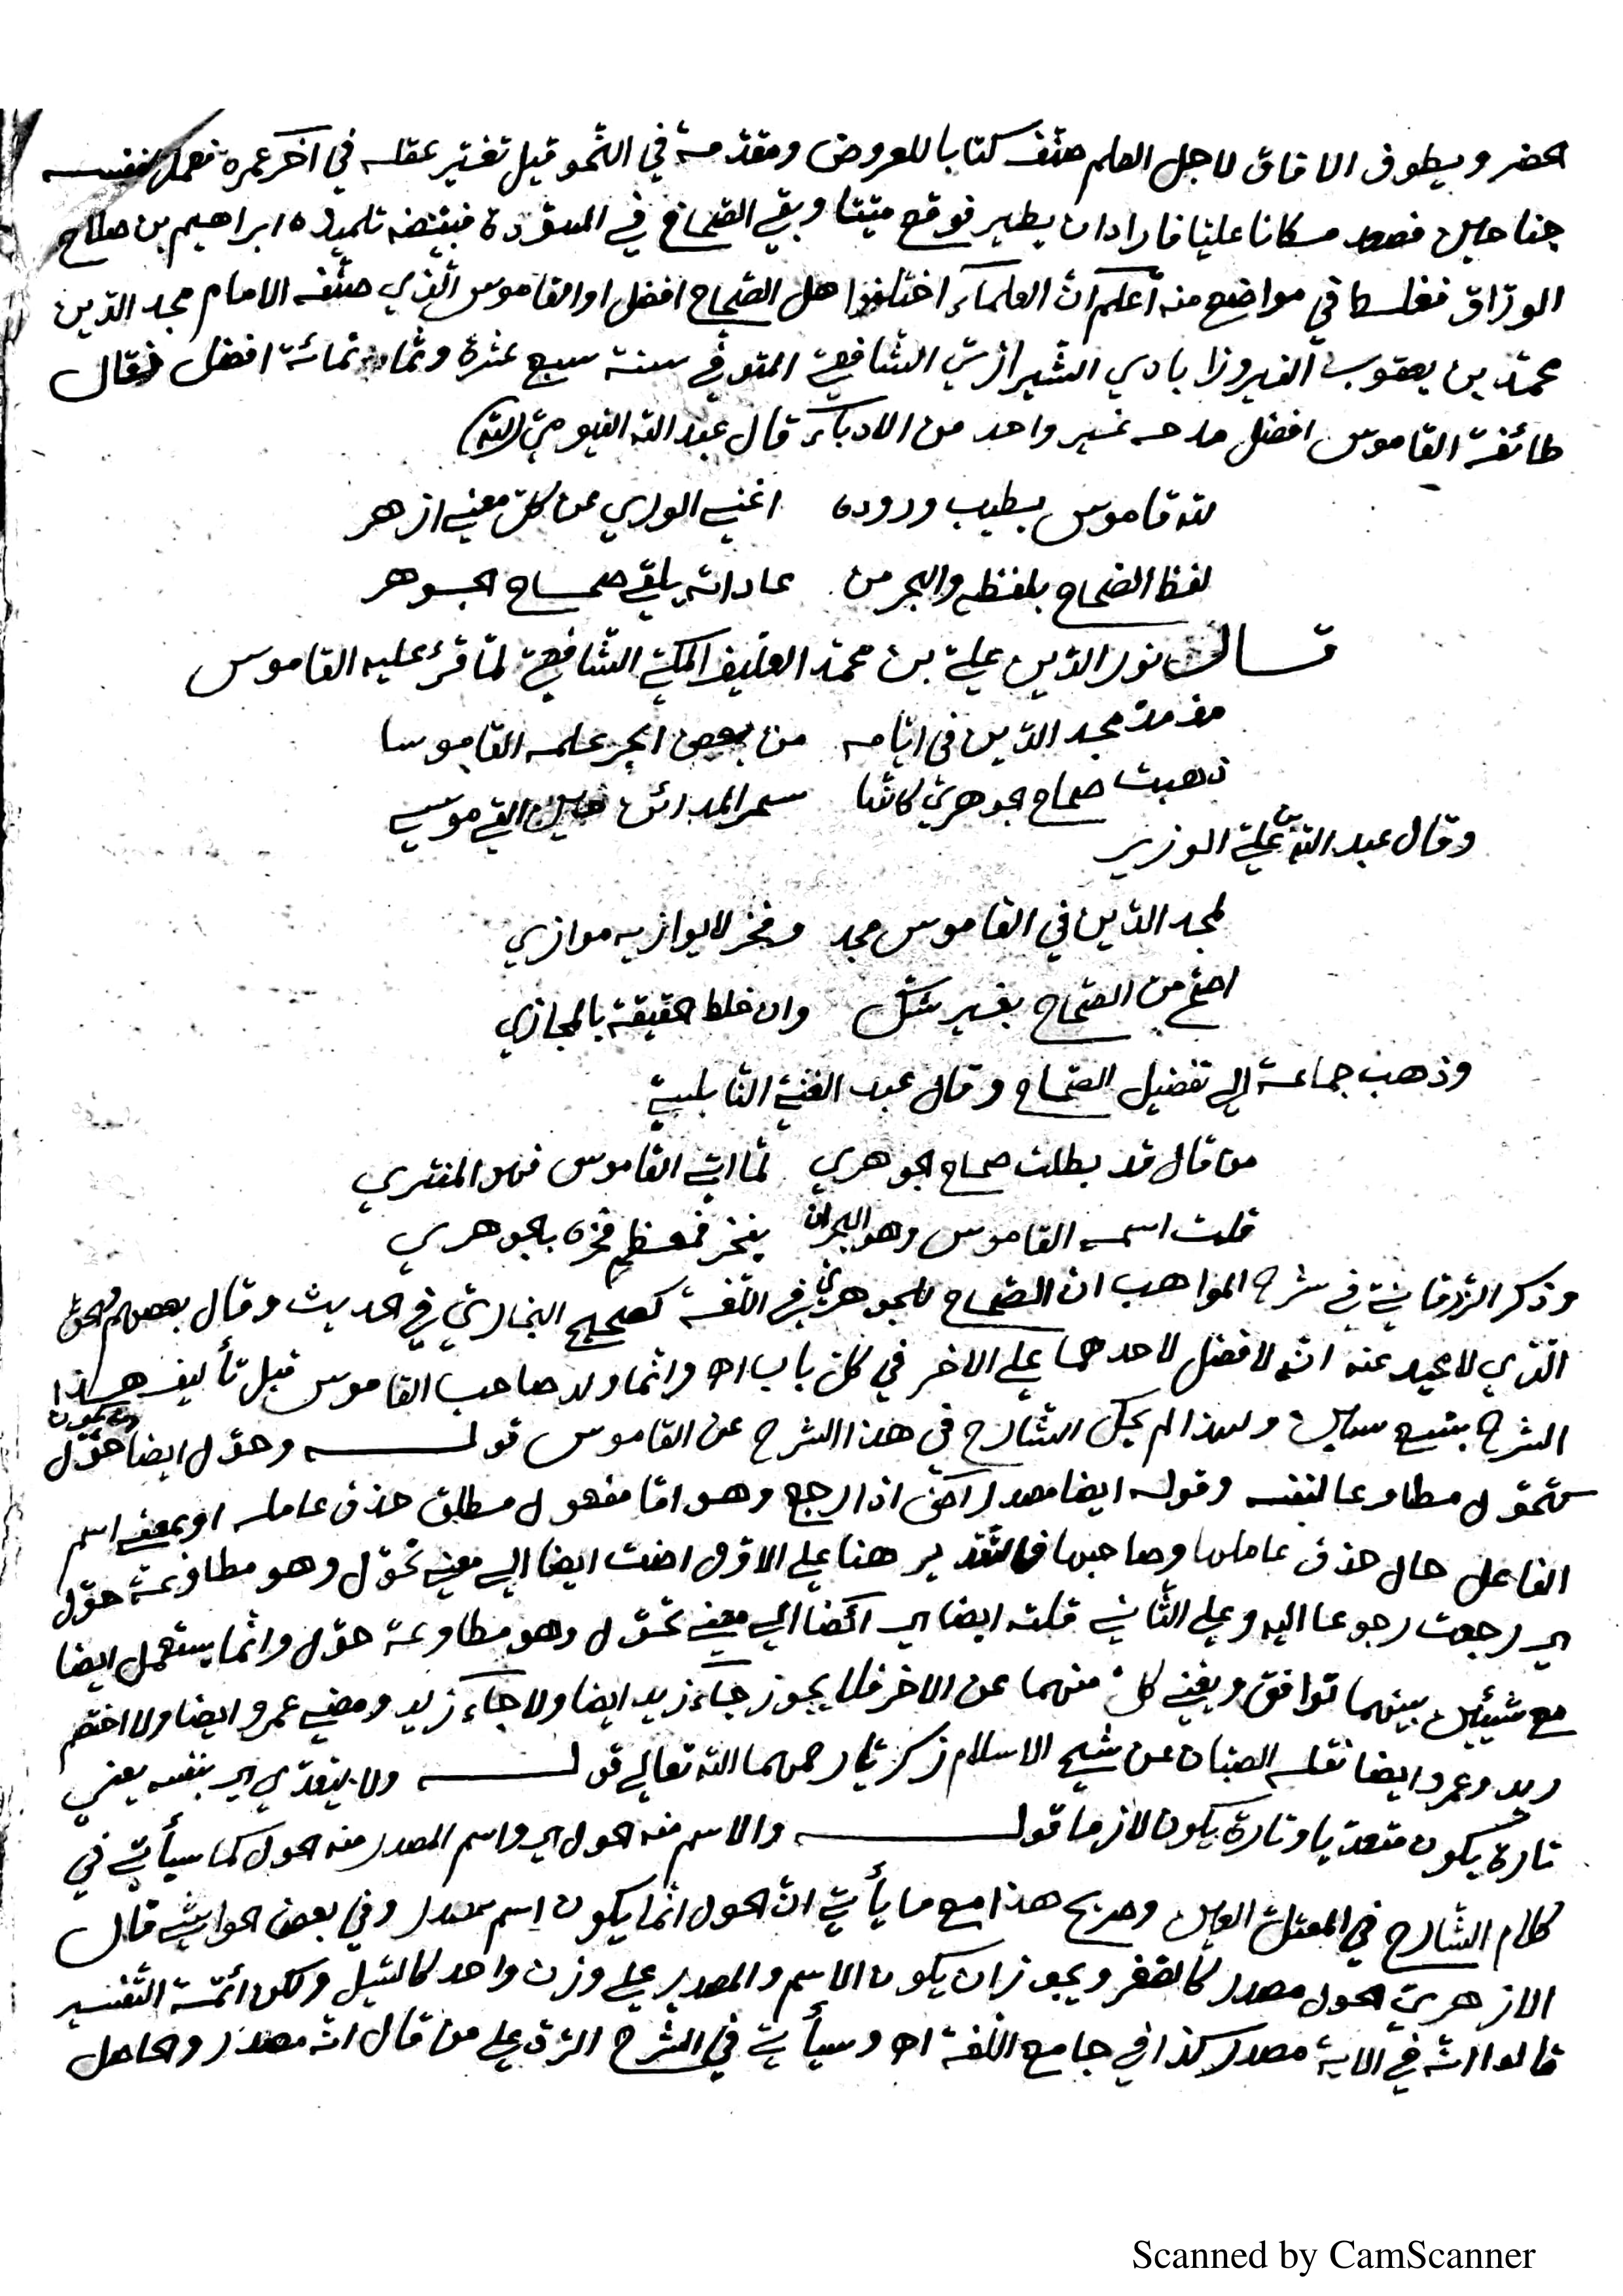 الحضر ويطوف الافاق لاجل العلم صنف كتابا للعروض ومقدّمة في النّحو قيل تغيّر عقله في آخر عمره فعمل لنفسه
جناحين فصعد مكانا عليا فاراد ان يطير فوقع ميّتا وبقي الصّحاح في المسوّدة فبيّضه تلميذه ابراهيم بن صالح
الورّاق فغلط في مواضع منه أعلم انّ العلماء اختلفوا هل الصّحاح افضل او القاموس الّذي صنّفه الامام مجد الدّين
محمّد بن يعقوب الفيروزابادي الشّيرازيّ الشّافعيّ المتوفّي سنة سبع عشرة وثمانمائة افضل فقال
طائفة القاموس افضل مدحه غير واحد من الادباء قال عبد اللّه الفيوميّ
للّه قاموس يطيب وروده اغني الوري عن كلّ معني ازهر
لفظ الصّحاح بلفظه والبحر من عاداته يلقي صحاح الجوهر
قال نور الدّين عليّ بن محمّد العفيف المكّي الشّافعيّ لمّا قرئ عليه القاموس
مذ مدّ مجد الدّين في ايّامه من بعض ابحر علمه القاموسا
ذهبت صحاح الجوهريّ كانّها سحر المدائن حين القي موسي
وقال عبد اللّه بن عليّ الوزير
لمجد الدّين في القاموس مجد وفخر لا يوازيه موازي
اصحّ من الصّحاح بغير شكّ وان خلط الحقيقة بالمجازي
وذهب جماعة إلي تفضيل الصّحاح وقال عبد الغنيّ النّابلسيّ
من قال قد بطلت صحاح الجوهري لمّا اتي القاموس فهو المفتري
قلت اسمه القاموس وهو البحر ان يفخر فمعظم فخره بالجوهري
وذكر الزّرقانيّ في شرح المواهب ان الصّحاح للجوهريّ في اللّغة كصحيح البخاريّ في الحديث وقال بعضهم والحقّ
الّذي لا محيد عنه انّه لا فضل لاحدهما علي الآخر في كلّ باب اه وانّما ولد صاحب القاموس قبل تأليف هذا
الشرح بتسع سنين ولهذا لم يحك الشّارح في هذا الشرح عن القاموس قوله وحوّل ايضا حوّل ويكون
كتحوّل مطاوعا لنفسه وقوله ايضا مصدر آض اذا رجع وهو امّا مفعول مطلق حذف عامله او بمعني اسم
الفاعل حال حذف عاملها وصاحبها فالتّقدير هنا علي الاوّل اضت ايضا إلي معني تحوّل وهو مطاوعة حوّل
اي رجعت رجوعا اليه وعلي الثّاني قلته ايضا اي آئضا إلي معني تحوّل وهو مطاوعة حوّل وانّما يستعمل ايضا
مع شيئين بينهما توافق ويغني كلّ منهما عن الآخر فلا يجوز جاء زيد ايضا ولا جاء زيد ومضي عمرو ايضا ولا اختصم
زيد وعمرو ايضا نقله الصبّان عن شيخ الاسلام زكريّا رحمهما اللّه تعالي قوله ولا يتعدّي اي بنفسه يعني
تارة يكون متعدّيا وتارة يكون لازما قوله والاسم منه الحول اي واسم المصدر منه الحول كما سيأتي في
كلام الشّارح في المعتلّ العين وصريح هذا مع ما يأتي انّ الحول انّما يكون اسم مصدر وفي بعض الحواشي قال
الازهريّ الحول مصدر كالصّغر ويجوز ان يكون الاسم والمصدر علي وزن واحد كالنّيل ولكن ائمّة التّفسير
قالوا انّه في الاية مصدر كذا في جامع اللّغة اه وسيأتي في الشرح الرّدّ علي من قال انّه مصدر والحاصل
Scanned by CamScanner